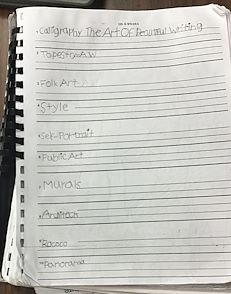 •Caligraphy The Art Of Beautiful Writing
•Tapestry
•Folk Art
•Style
•Self-Portrait
•Public Art
•Murals
•Architech
•Rococo
•Panorama